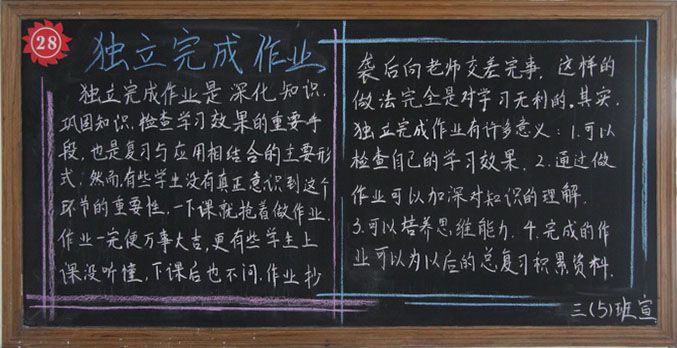 28
独立完成作业
独立完成作业是深化知识.
巩固知识.检查学习效果的重要手
段,也是复习与应用相结合的主要形
式;然而,有些学生没有真正意识到这个
环节的重要性,一下课就抢着做作业.
作业一完便万事大吉,更有些学生上
课没听懂,下课后也不问.作业抄
袭后向老师交差完事.这样的
做法完全是对学习无利的。其实.
独立完成作业有许多意义:1.可以
检查自己的学习效果.2.通过做
作业可以加深对知识的理解.
3.可以培养思维能力.4.完成的作
业可以为以后的总复习积累资料.
三(5)班宣